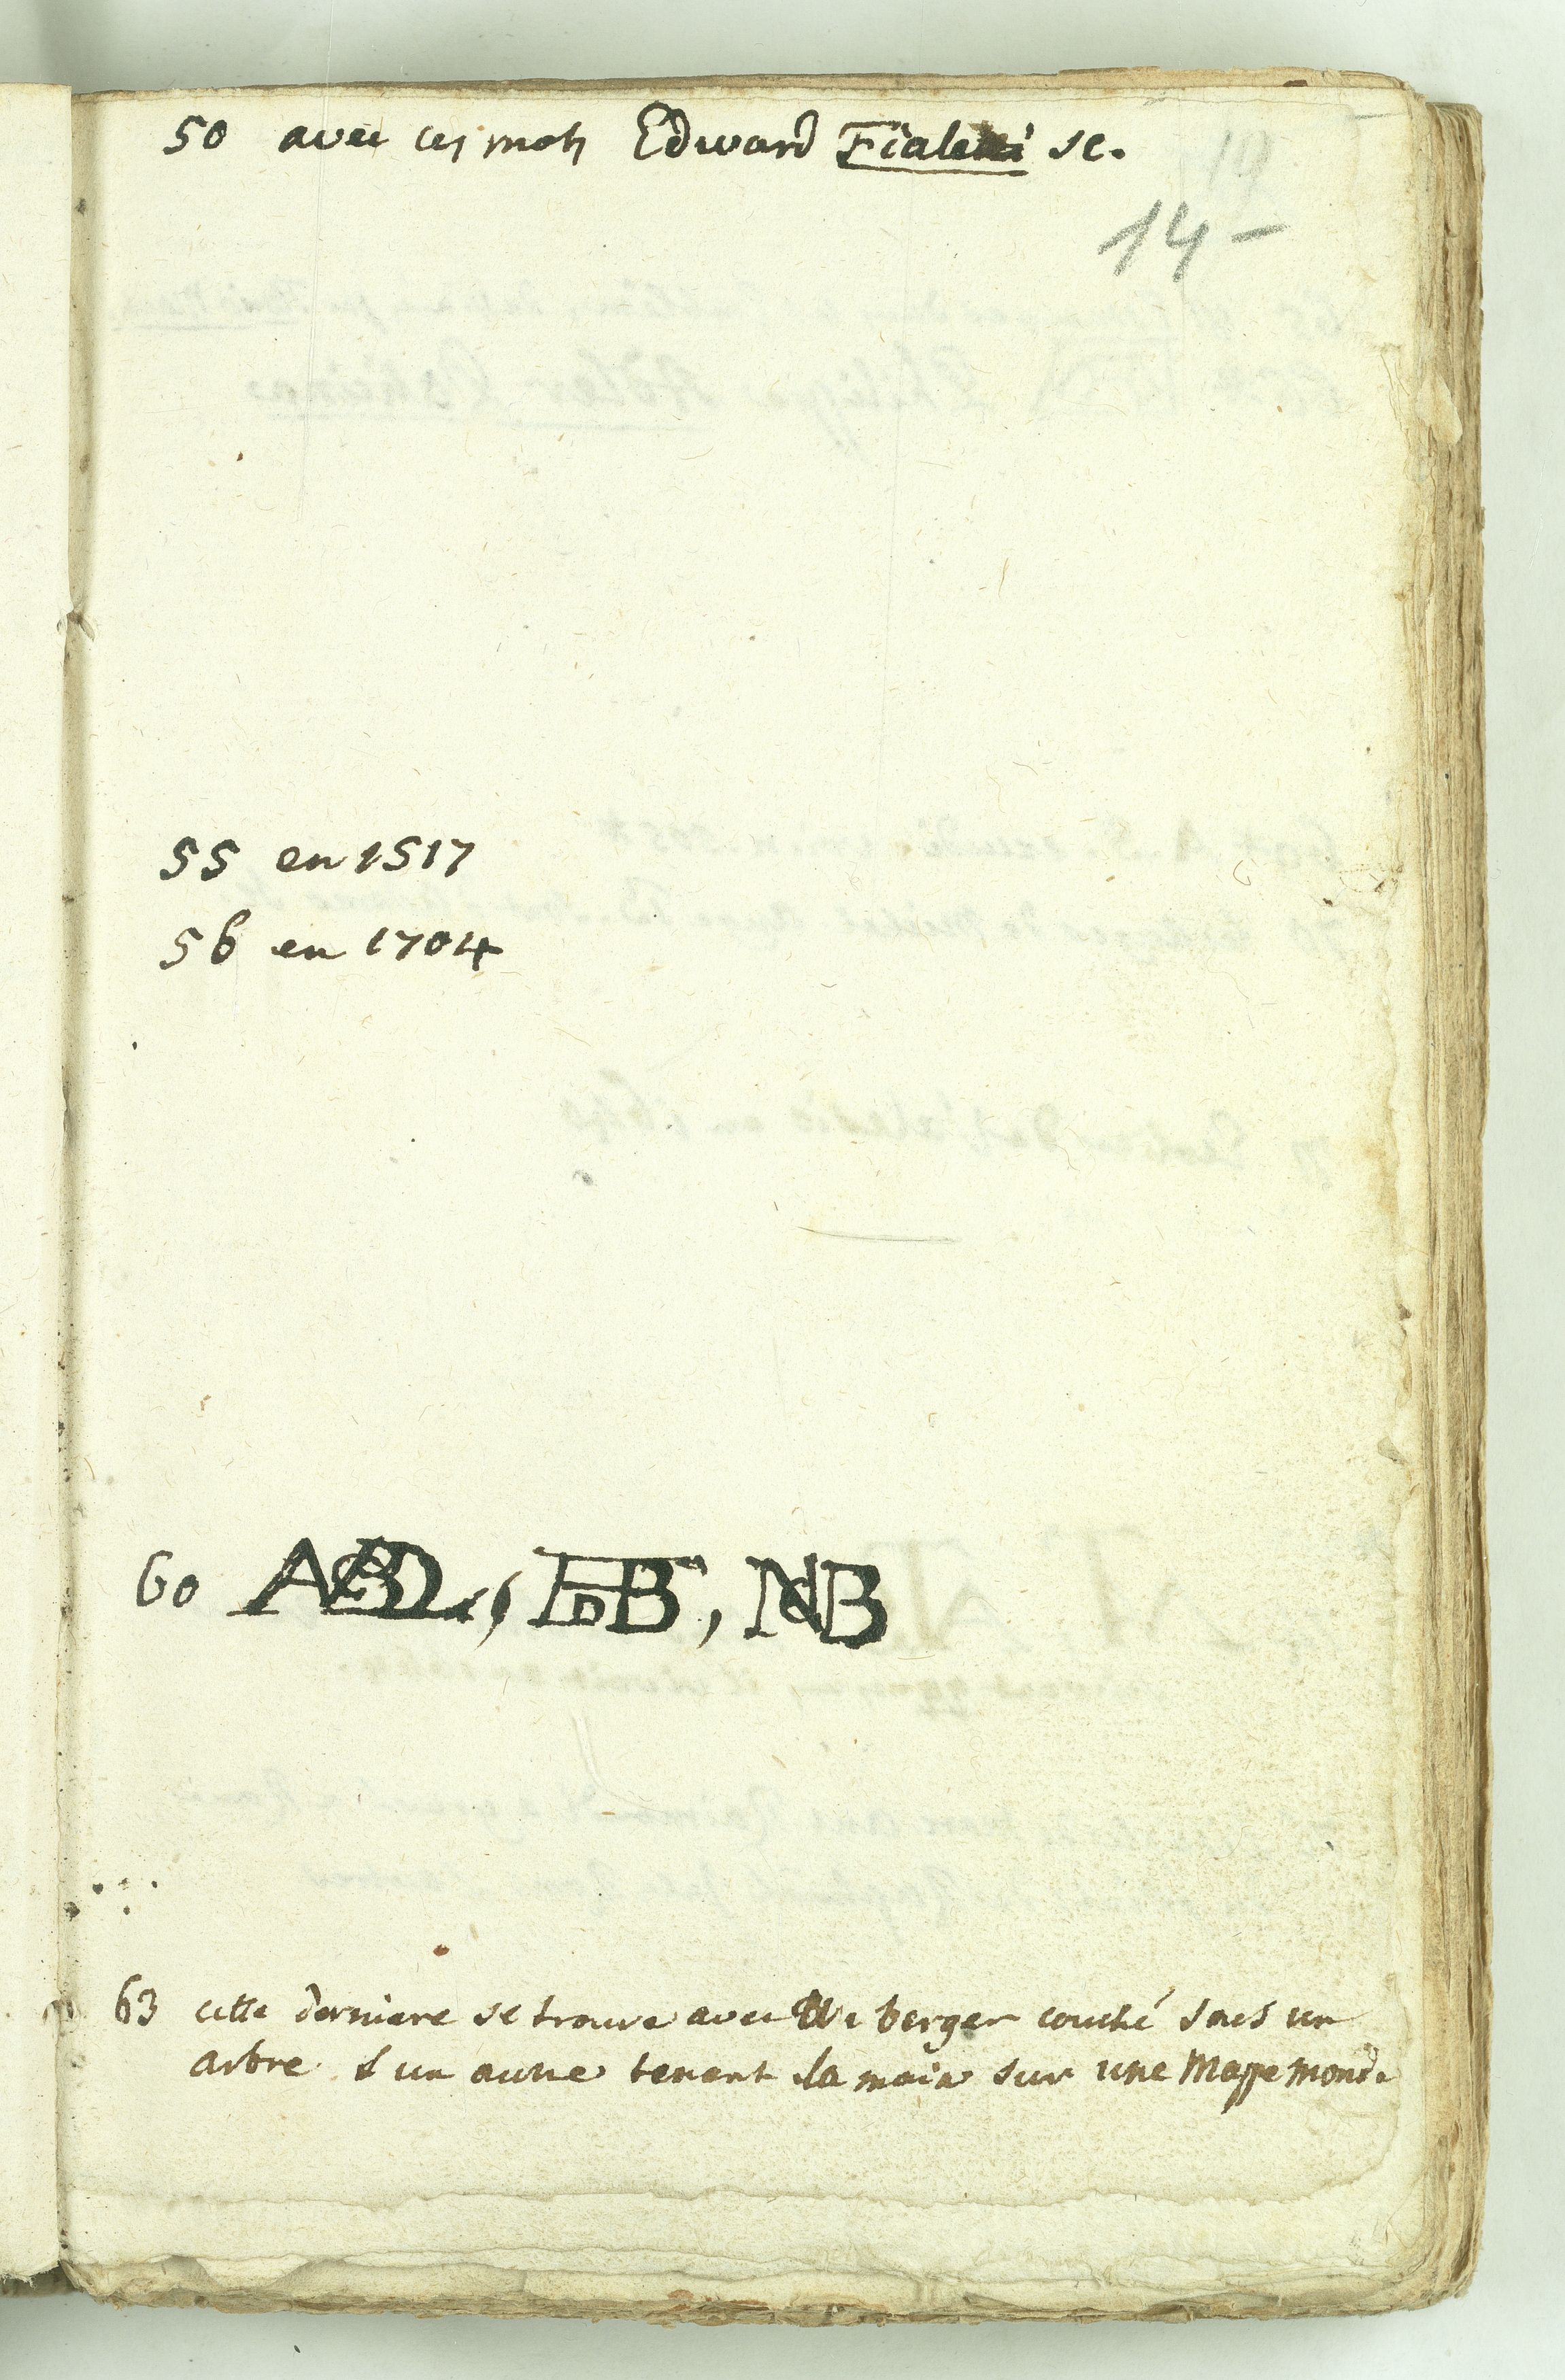 50 avec ces mots Edward Fialetti sc.
19
14 -
55 en 1517
56 en 1704
60 , , NB
63 cette derniere se trouve avec un berger couché sous un
arbre & un autre tenant la main sur une Mappe monde